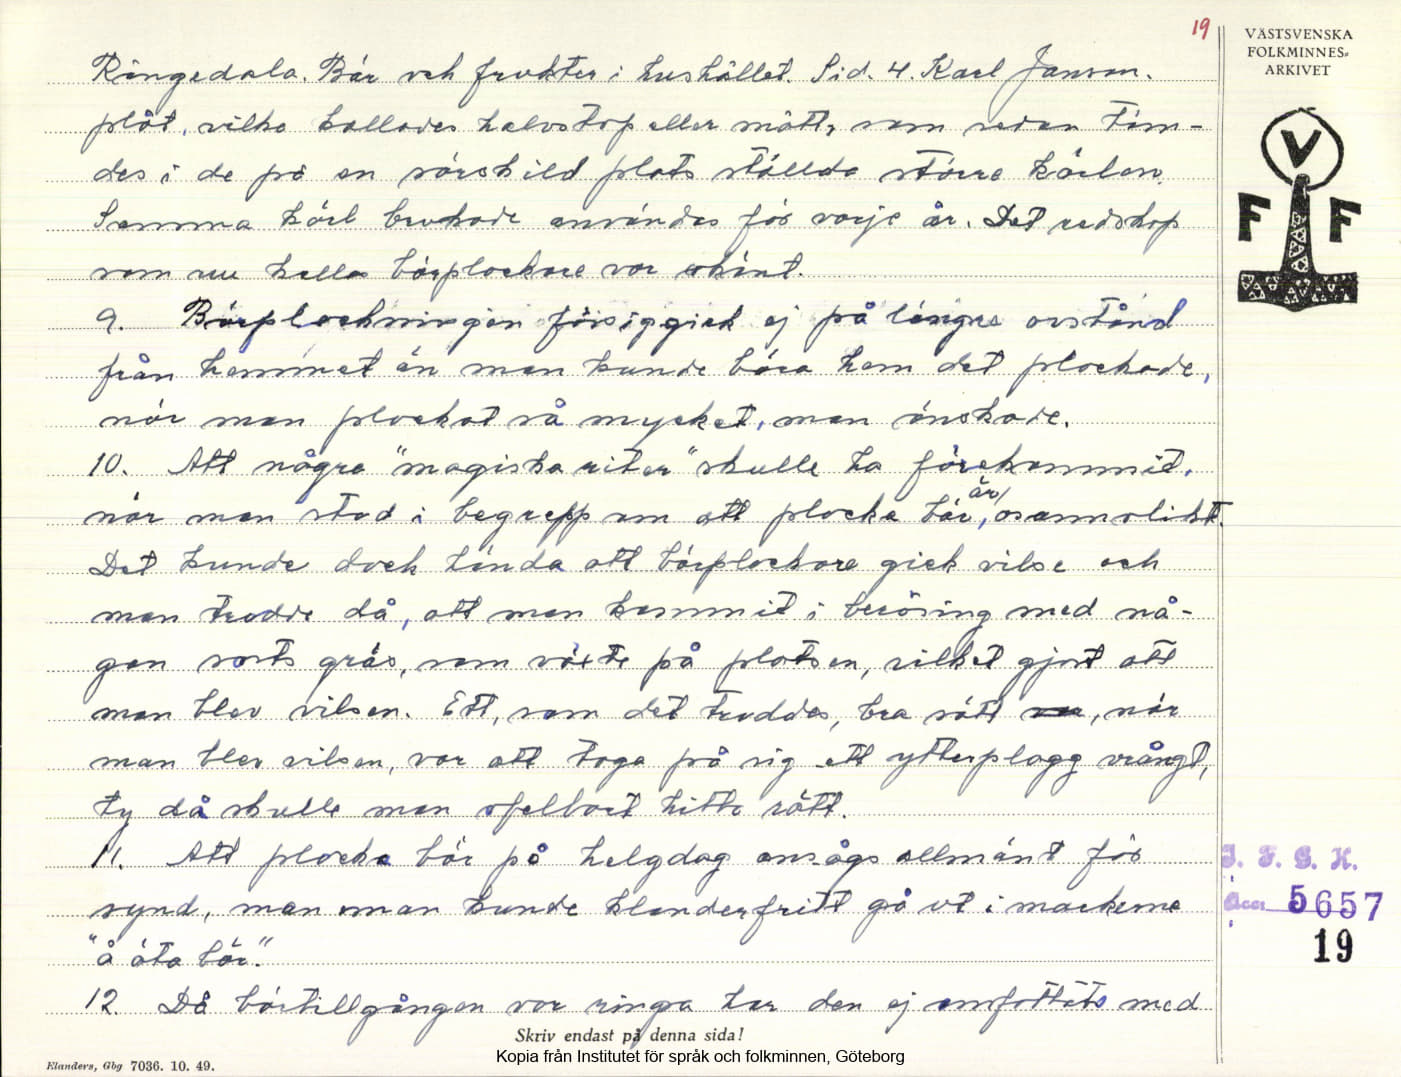 19
VÄSTSVENSKA
FOLKMINNES-
ARKIVET
V
F F
Ringedala. Bär och frukter i hushållet. Sid. 4. Karl Janson.
plåt, vilka kallades halvstop eller mått, som sedan töm-
des i de på en särskild plats ställda större kärlen.
Samma kärl brukade användas för varje år. Det redskap
som nu kallas bärplockare var okänt.
9. Bärplockningen försiggick ej på längre avstånd
från hemmet än man kunde bära hem det plockade,
när man plockat så mycket, man önskade.
10. Att några "magiska riter" skulle ha förekommit,
när man stod i begrepp om att plocka bär, är osannolikt.
Det kunde dock hända att bärplockare gick vilse och
man trodde då, att man kommit i beröring med nå-
gon sorts gräs, som växte på platsen, vilket gjort att
man blev vilsen. Ett, som det troddes, bra sätt, när
man blev vilsen, var att taga på sig ett ytterplagg vrångt,
ty då skulle man ofelbart hitta rätt.
11. Att plocka bär på helgdag ansågs allmänt för
synd, men man kunde klanderfritt gå ut i markerna
"å äta bär".
12. Då bärtillgången var ringa har den ej omfattats med
I. F. G. H.
Acc. 5657
19
Skriv endast på denna sida!
Kopia från Institutet för språk och folkminnen, Göteborg
Elanders, Gbg 7036. 10. 49.